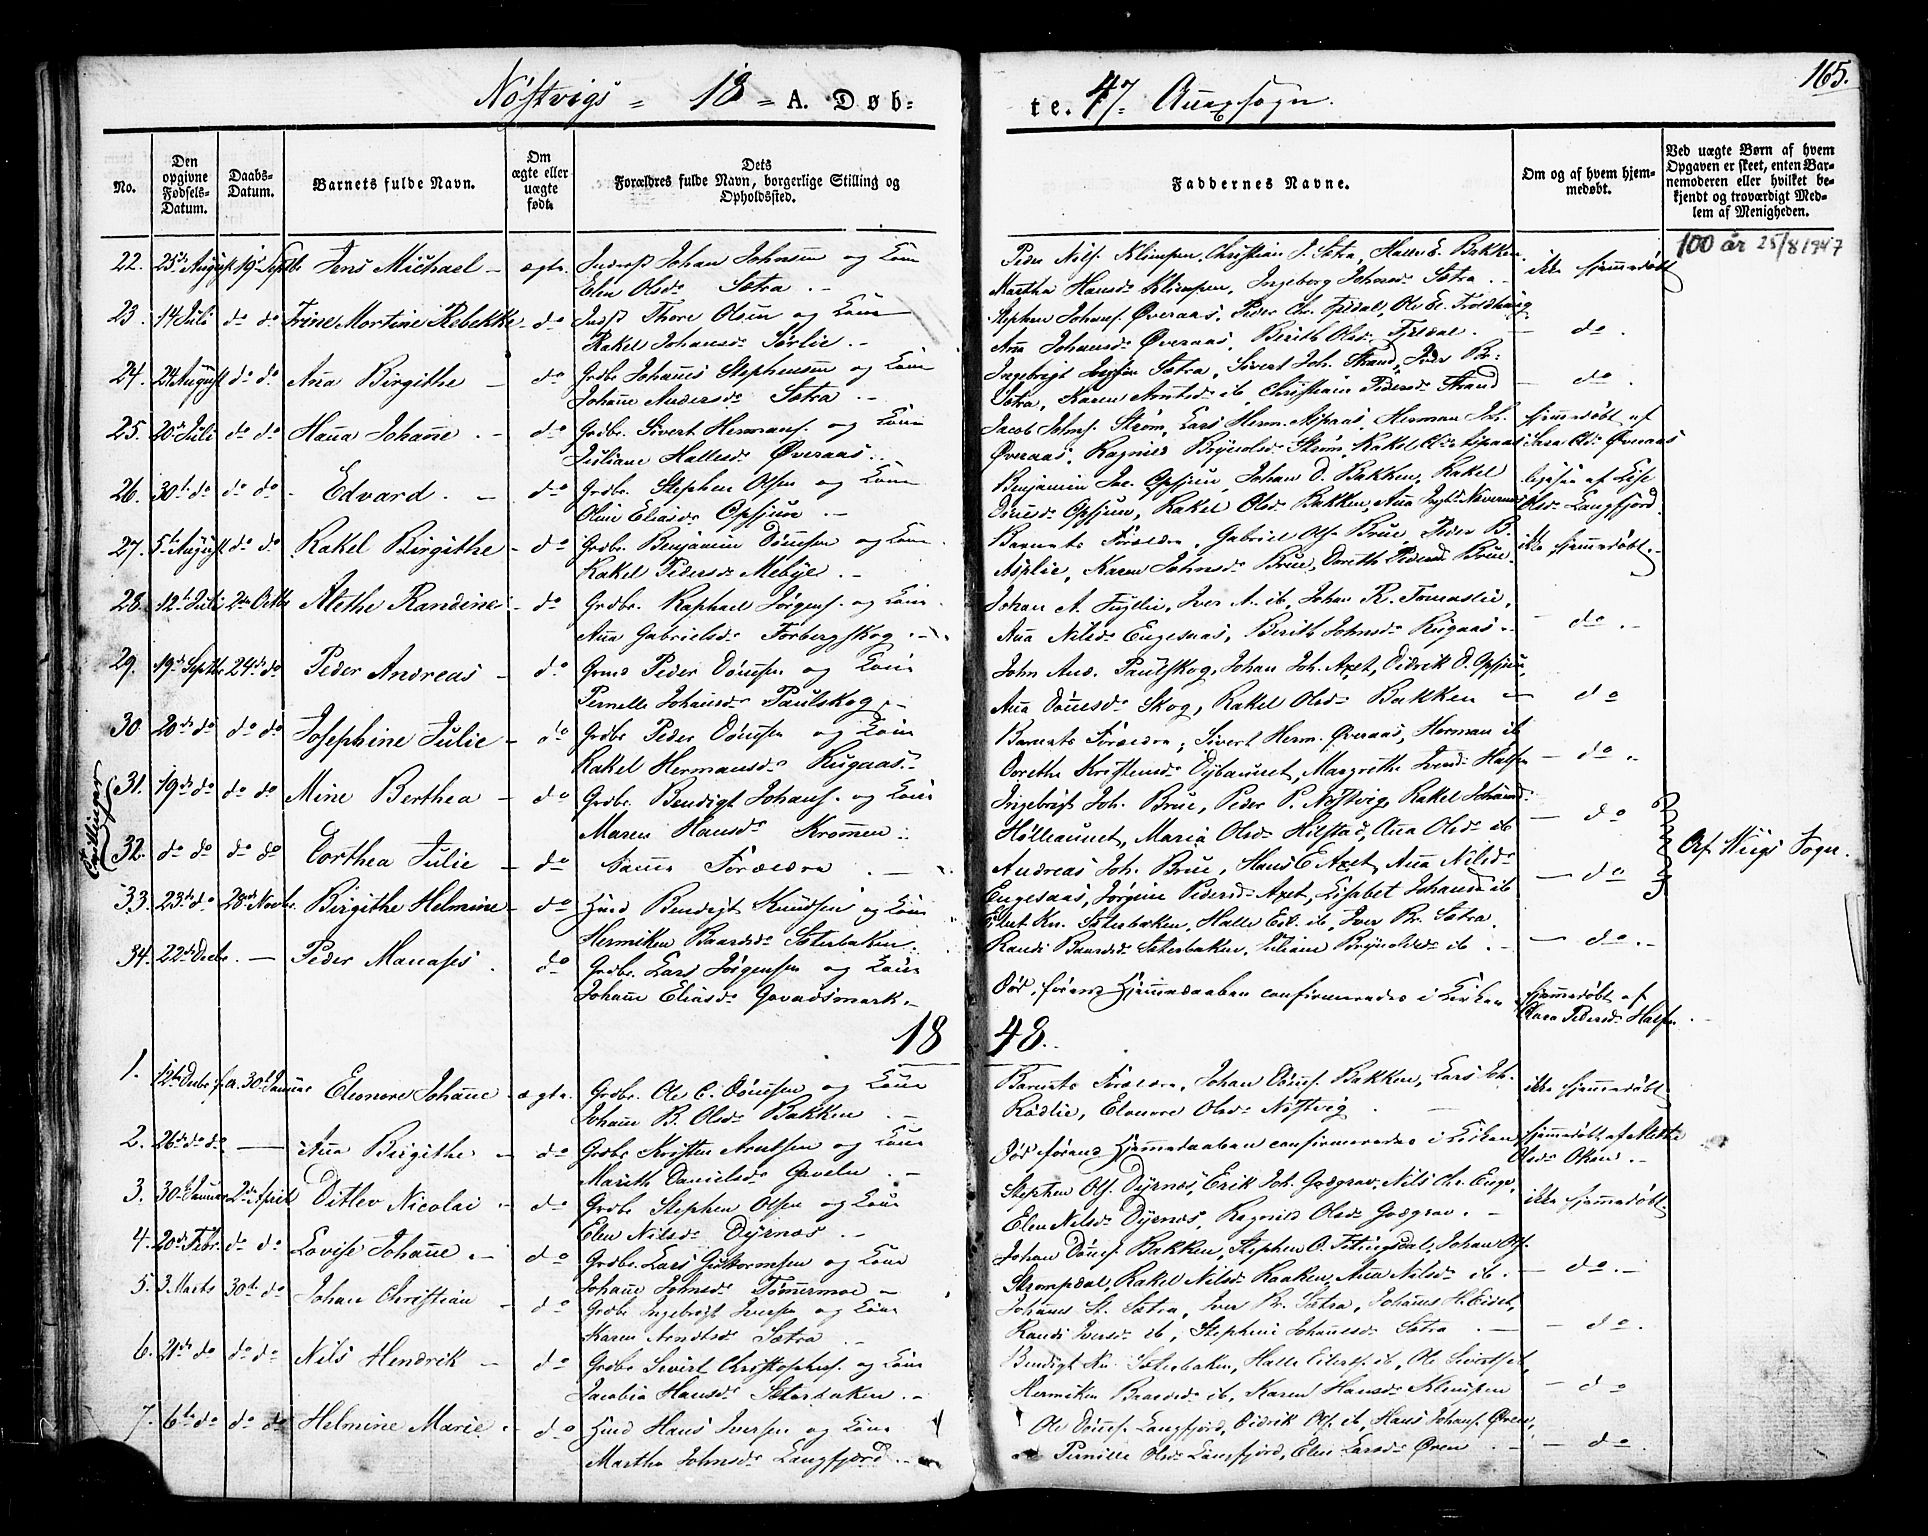 Nøstvigs = 18 = A. Døb-
te. 47. Auexsogn.
165.
No.
Den opgivne Fødsels-Datum.
Daabs-Datum.
Barnets fulde Navn.
Om ægte eller uægte født.
Dets Forældres fulde Navn, borgerlige Stilling og Opholdssted.
Faddernes Navne.
Om og af hvem hjemmedøbt.
Ved uægte Børn af hvem Opgaven er skeet, enten Barnemoderen eller hvilket bekjendt og troværdigt Medlem af Menigheden.
22. 25de August 19de Septbr Jens Michael - ægte. Inderst Johan Johnsen og Kone
Elen Olsdr Sætra
Peder Nils. Klimpen, Christian J. Sætra, Halle E. Bakken
Martha Hansdr Klimpen, Ingeborg Johnsdr Sætra
ikke hjemmedøbt
100 år 25/8 1947
23. 14 Juli do do Trine Mortine Rebekke - do Indst Thore Olsen og Kone
Rakel Johansdr Sørlie
Stephen Johans. Øveraas, Peder Chr. Fjeldal, Ole E. Troldhaug
Ana Johansdr Øveraas, Berith Olsdr Fjeldal - do
24. 24 August do do Ana Birgithe - do Grdbr Johanes Stephensen og Kone
Johane Andersdr Sætra
Ingebrigt Sætra, Sivert Joh. Strand, Iver Br.
Sætra, Karen Arntsdr ib, Christiane Pedersdr Strand - do
25. 20de Juli do do Hana Johane - do Grdbr. Sivert Hermans. og Kone
Juliane Hallesdr Øveraas
Jacob Johns. Strøm, Lars Herm. Aspaas, Herman Joh.
Øveraas, Ragnild Brynolsdr Strøm, Rakel Aspaas
hjemmedøbt af
Sara Olsdr Øveraas
26. 30te do do do - Edvard - do Grdbr. Stephen Olsen og Kone
Oline Eliasdr Opsjøen
Benjamin Opsjøen, Johan D. Bakken, Rakel
Dønesdr Opsjøen, Rakel Olsdr Bakken, Ana
ligesaa af Lise
Olsdr Langfjord
27. 5te August do do Rakel Birgithe - do Grdbr. Benjamin Dønesen og Kone
Rakel Pedersdr Mebye
Barnets Forældre, Gabriel Ols. Brue, Peder B.
Asplie, Karen Johnsdr Brue, Doreth Pedersdr Brue
ikke hjemmedøbt
28. 12te Juli 2den Octbr Alethe Randine - do Grdbr. Raphael Jørgens. og Kone
Ana Gabrielsdr Forbergskog
Johan A. Fuglie, Iver A. ib, Johan R.
Ana Nilsdr Engesaas, Berith Johnsdr Rugaas - do
29. 19de Septbr 24de do Peder Andreas - do Peder Dønesen og Kone
Pernille Johansdr Paulskog
John And. Paulskog, Johan Joh. Axet, Didrik D. Opsjøen,
Ana Dønesdr Skog, Rakel Olsdr Bakken - do
30. 20de do do do Josephine Julie - do Grdbr Peder Dønesen og Kone
Rakel Hermansdr Rugaas
Barnets Forældre, Sivert Herm. Øveraas, Herman ib
Dorethe Kristensdr Dybaunet, Margrethe - do
Tvillinger
31. 19de do do do Mine Berthea - do Grdbr. Bendigt Johans. og Kone
Maren Hansdr Krommen
Ingebrigt Joh. Brue, Peder P. Nøstvig, Rakel Johansdr
Hølleaunet, Maria Olsdr Hilstad, Ana Olsdr ib - do
Af Wiigs Sogn.
32. do do do do Dorthea Julie - do Same Forældre
Andreas Joh. Brue, Hans E. Axet, Ana Nilsdr
Engesaas, Jørgine Pedersdr Axet, Lisabet Johansdr ib - do
33. 23de do 28de Novbr. Birgithe Helmine - do Huusmd Bendigt Knudsen og Kone
Hermiken Baardsdr Sæterbaken
Elert Kn. Sæterbaken, Halle Eil. ib, Iver Br. Sætra
Randi Baardsdr Sæterbaken, Juliane Brynolsdr ib - do
34. 22de Decbr. - Peder Manases. do Grdbr. Lars Jørgensen og Kone
Johane Eliasdr Gavadsmark
Død, førend Hjemmedaaben confirmeredes i Kirken
hjemmedøbt af
Pedersdr
18 48.
1. 12te Decbr f.a. 30te Januar Eleonore Johane - ægte. Grdbr. Ole C. Dønesen og Kone
Johane B. Olsdr Bakken
Barnets Forældre, Johan Dønes. Bakken, Lars Joh.
Rødlie, Elonore Olsdr Nøstvig
ikke hjemmedøbt
2. 26de do do - Ana Birgithe - do Grdbr Kristen Arntsen og Kone
Marith Danielsdr Gavelen
Død førend Hjemmedaaben confirmeredes i Kirken
hjemmedøbt af Alethe
Olsdr
3. 30te Januar 2den April Ditlev Nicolai - do Grdbr Stephen Olsen og Kone
Elen Nilsdr Dyrnæs
Stephen Ols. Dyrnæs, Erik Joh. Godgrav, Nils Chr. Enge,
Elen Nilsdr Dyrnæs, Ragnild Olsdr Godgrav
ikke hjemmedøbt
4. 20de Febr. do do Lovise Johane - do Grdbr. Lars Guttormsen og Kone
Johane Johnsdr Tømermoe
Johan Dønes. Bakken, Stephen O. Johan Ols.
Strømpdal, Rakel Nilsdr Baaken, Ana Nilsdr ib. - do
5. 3 Marts 30te do Johan Christian - do Grdbr Ingebrigt Iversen og Kone
Karen Arntsdr Sætra
Johanes St. Sætra, Iver Br. Sætra, Johanes H. Eidet,
Randi Iversdr ib, Stephine Johanesdr Sætra - do
6. 21de do do do Nils Hendrik - do Grdbr Sivert Christophers. og Kone
Jacobia Hansdr Sæterbaken
Bendigt Kn. Sæterbaken, Halle Eilerts. ib, Ole Siverts. ib,
Hermiken Baardsdr ib, Karen Hansdr Klimpen - do
7. 6te do do do Helmine Marie - do Huusmd Hans Iversen og Kone
Martha Johnsdr Langfjord
Ole Dønes. Langfjord, Didrik Ols. ib, Hans Johans. Øren,
Pernille Olsdr Langfjord, Elen Larsdr Øren - do